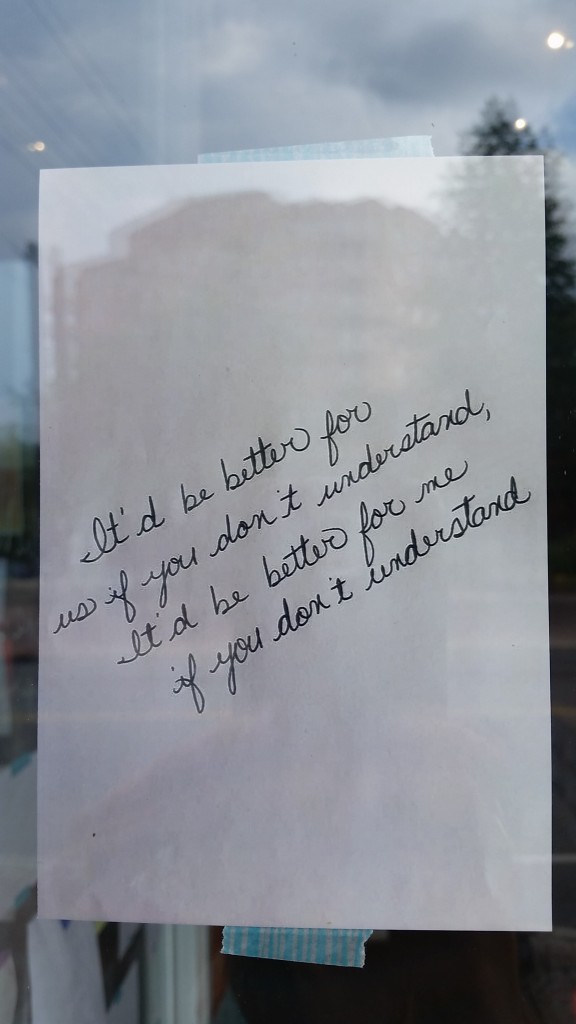 It'd be better for
us if you don't understand,
It'd be better for me
if you don't understand